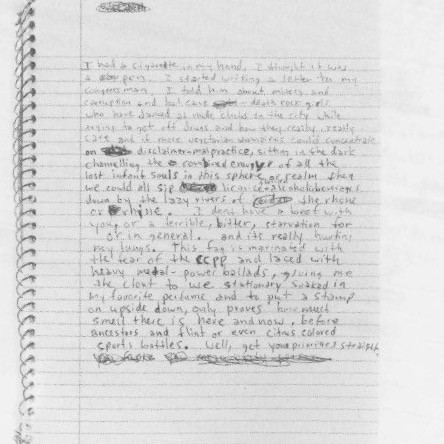 I had a cigarette in my hand, I thought it was
a pen. I started writing a letter to my
congress man, I told him about misery and
corruption and bat cave death rock girls
who danced at nude clubs in the city while
trying to get off drugs and how they really, really
care and if more vegetarian vampires could concentrate
on disclaimer malpractice, sitting in the dark
channelling the combined energy of all the
lost infant souls in this sphere or realm then
we could all sip licorice alcohol beverages
down by the lazy rivers of the rhone
or I dont have a beef with
you or a terrible, bitter, starvation for
or in general. and its really hurting
my lungs. This fag is marinated with
the fear of the CCPP and laced with
heavy metal-power ballads, giving me
the clout to use stationary soaked in
my favorite perfume and to put a stamp
on upside down, only proves how much
smell there is here and now, before
ancestors and flint or even citrus colored
sports bottles. Well, get your priorities straight